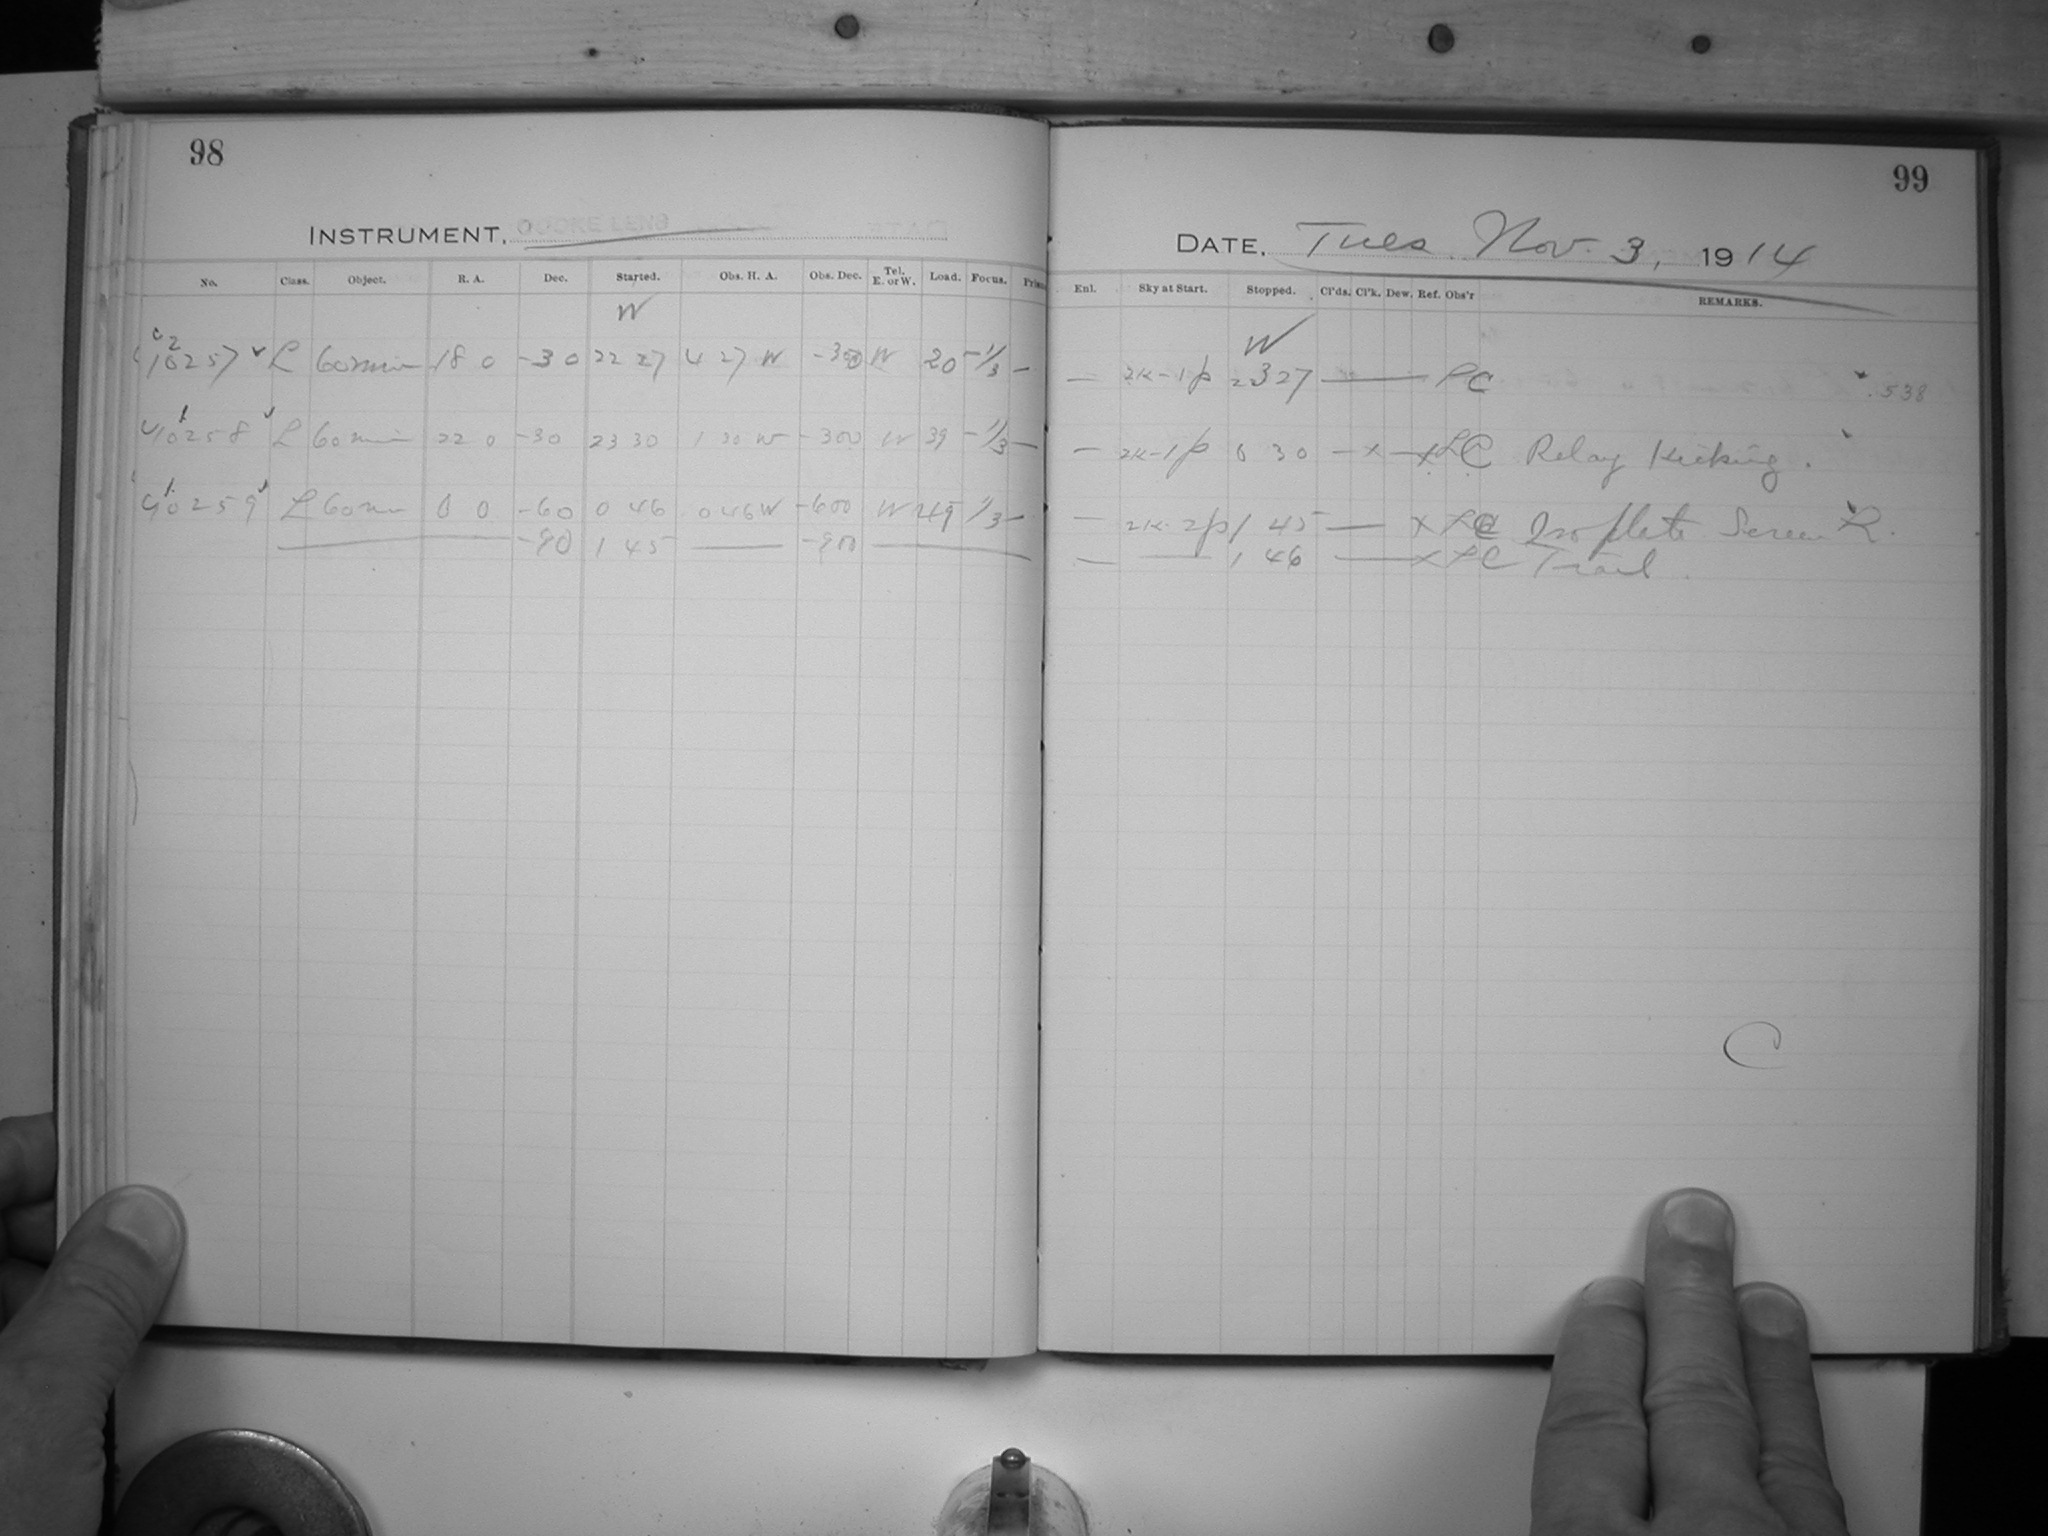 98
INSTRUMENT, COOKE LENS
No. Class. Object. R. A. Dec. Started. Obs. H. A. Obs. Dec. Tel. E. or W. Load. Focus.
W
2
10257 L 60 min 18 0 -30 22 27 4 27 W -300 W 20 -1/3 —
1
10258 L 60 min 22 0 -30 23 30 1 30 W -300 W 39 -1/3 —
1
10259 L 60 min 0 0 -60 0 46 0 46 W -600 W 49 1/3 —
— -90 1 45 — -900 —
99
DATE, Tues Nov. 3, 1914
Enl. Sky at Start. Stopped. Cl'ds. Cl'k. Dew. Ref. Obs'r REMARKS.
W
— 2K-1p 2327 — LC .538
— 2K-1p 0 30 — x — x LC Relay Kicking.
— 2K-2p 1 45 — x LC Iso plate Screen R.
— — 1 46 — x LC Trail.
C